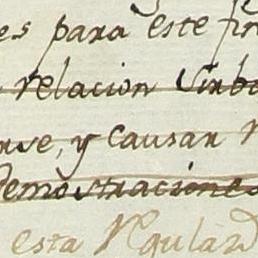 es para este fin
relacion Sinbo
rse, y causan
Demostracione
esta Regular